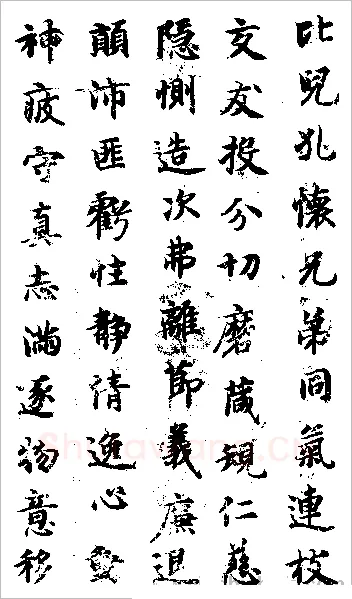 比兒孔懷兄弟同氣連枝
交友投分切磨葴規仁慈
隐惻造次弗離節義廉退
顛沛匪虧性静清逸心動
神疲守真志滿逐物意移